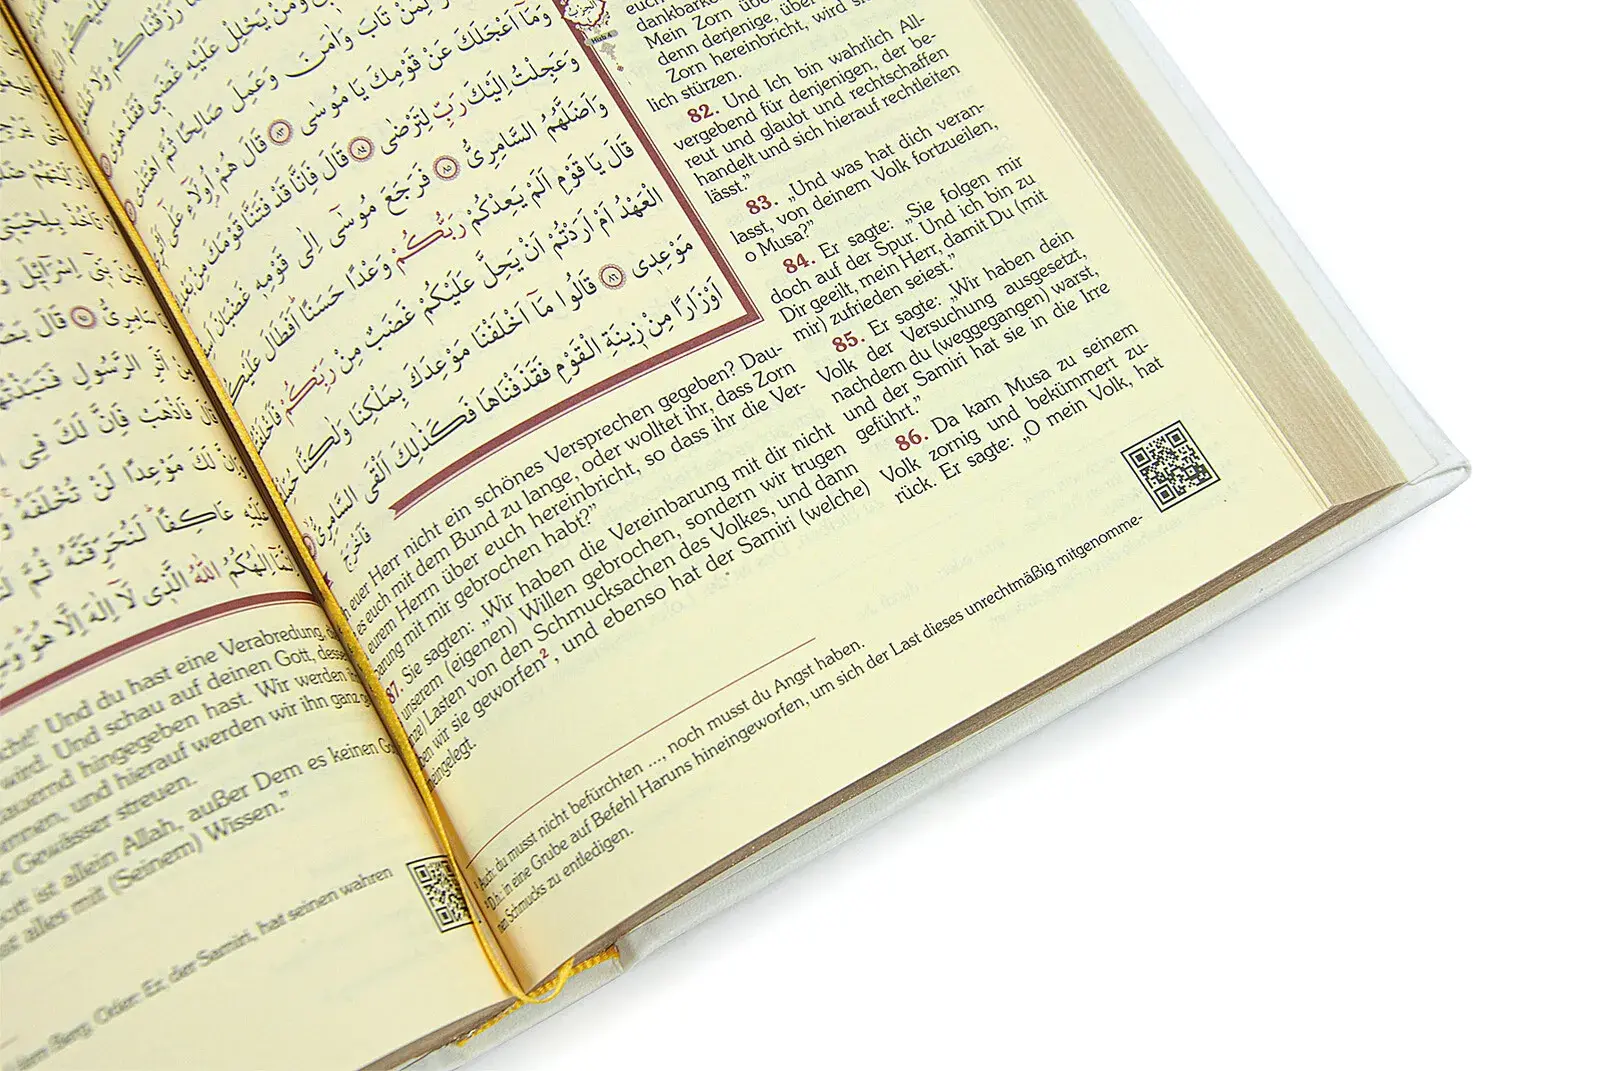 وَمَنْ يَحْلِلْ عَلَيْهِ غَضَبِى فَقَدْ هَوٰى
لِمَنْ تَابَ وَاٰمَنَ وَعَمِلَ صَالِحًا ثُمَّ اهْتَدٰى
وَمَٓا اَعْجَلَكَ عَنْ قَوْمِكَ يَا مُوسٰى ٨٣ قَالَ هُمْ اُو۬لَٓاءِ عَلٰٓى
وَعَجِلْتُ اِلَيْكَ رَبِّ لِتَرْضٰى ٨٤ قَالَ فَاِنَّا قَدْ فَتَنَّا قَوْمَكَ مِنْ
وَاَضَلَّهُمُ السَّامِرِىُّ ٨٥ فَرَجَعَ مُوسٰٓى اِلٰى قَوْمِه۪ غَضْبَانَ
قَالَ يَا قَوْمِ اَلَمْ يَعِدْكُمْ رَبُّكُمْ وَعْدًا حَسَنًا اَفَطَالَ عَلَيْكُمُ
الْعَهْدُ اَمْ اَرَدْتُمْ اَنْ يَحِلَّ عَلَيْكُمْ غَضَبٌ مِنْ رَبِّكُمْ فَاَخْلَفْتُمْ
مَوْعِدِى ٨٦ قَالُوا مَٓا اَخْلَفْنَا مَوْعِدَكَ بِمَلْكِنَا وَلٰكِنَّا حُمِّلْنَٓا
اَوْزَارًا مِنْ زِينَةِ الْقَوْمِ فَقَذَفْنَاهَا فَكَذٰلِكَ اَلْقَى السَّامِرِىُّ
Hizb 4
euch
dankbarke
Mein Zorn übe
denn derjenige, über
Zorn hereinbricht, wird si
lich stürzen.
82. Und Ich bin wahrlich All-
vergebend für denjenigen, der be-
reut und glaubt und rechtschaffen
handelt und sich hierauf rechtleiten
lässt.“
83. „Und was hat dich veran-
lasst, von deinem Volk fortzueilen,
o Musa?“
84. Er sagte: „Sie folgen mir
doch auf der Spur. Und ich bin zu
Dir geeilt, mein Herr, damit Du (mit
mir) zufrieden seiest.“
85. Er sagte: „Wir haben dein
Volk der Versuchung ausgesetzt,
nachdem du (weggegangen) warst,
und der Samiri hat sie in die Irre
geführt.“
86. Da kam Musa zu seinem
Volk zornig und bekümmert zu-
rück. Er sagte: „O mein Volk, hat
euer Herr nicht ein schönes Versprechen gegeben? Dau-
es euch mit dem Bund zu lange, oder wolltet ihr, dass Zorn
eurem Herrn über euch hereinbricht, so dass ihr die Ver-
barung mit mir gebrochen habt?“
87. Sie sagten: „Wir haben die Vereinbarung mit dir nicht
unserem (eigenen) Willen gebrochen, sondern wir trugen
Lasten von den Schmucksachen des Volkes, und dann
wir sie geworfen², und ebenso hat der Samiri (welche)
eingelegt.
Auch: du musst nicht befürchten ..., noch musst du Angst haben.
² D.h.: in eine Grube auf Befehl Haruns hineingeworfen, um sich der Last dieses unrechtmäßig mitgenomme-
nen Schmucks zu entledigen.
وَلَا تَأْخُذْ بِلِحْيَتِى
بَنِٓى اِسْرَٓائِلَ
سَامِرِىُّ ٩٥ قَالَ
اَثَرِ الرَّسُولِ فَنَبَذْتُهَا
قَالَ فَاذْهَبْ فَاِنَّ لَكَ فِى
لَكَ مَوْعِدًا لَنْ تُخْلَفَهُ
عَلَيْهِ عَاكِفًا لَنُحَرِّقَنَّهُ ثُمَّ
اِلٰهُكُمُ اللّٰهُ الَّذِى لَٓا اِلٰهَ اِلَّا هُوَ
cht!“ Und du hast eine Verabredung, d
wird. Und schau auf deinen Gott, desse
auernd hingegeben hast. Wir werden
ennen, und hierauf werden wir ihn ganz
Gewässer streuen.
ist allein Allah, außer Dem es keinen
alles mit (Seinem) Wissen.“
dem Berg. Oder: Er, der Samiri, hat seinen wahren